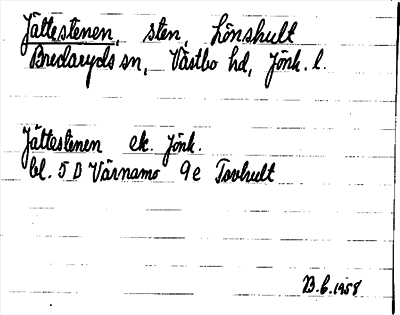 Jättestenen, sten, Lönshult
Bredaryds sn, Västbo hd, Jönk. l.
Jättestenen ek. Jönk.
bl. 5 D Värnamo 9e Tovhult
B.6.1958